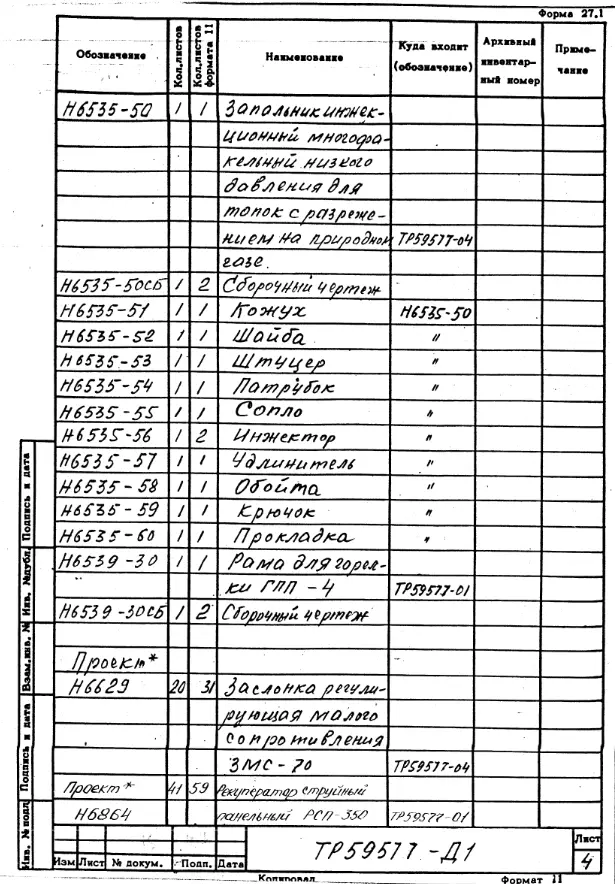 Форма 27.1
Обозначение Кол.листов Кол.листов формата 11 Наименование Куда входит (обозначение) Архивный инвентарный номер Примечание
Н6535-50 1 1 Запальник инжек-
ционный многофа-
кельный низкого
давления для
топок с разреже-
нием на природном ТР59577-04
газе.
Н6535-50СБ 1 2 Сборочный чертеж
Н6535-51 1 1 Кожух Н6535-50
Н6535-52 1 1 Шайба "
Н6535-53 1 1 Штуцер "
Н6535-54 1 1 Патрубок "
Н6535-55 1 1 Сопло "
Н6535-56 1 2 Инжектор "
Н6535-57 1 1 Удлинитель "
Н6535-58 1 1 Обойма "
Н6535-59 1 1 Крючок "
Н6535-60 1 1 Прокладка "
Н6539-30 1 1 Рама для горел-
ки ГПП-4 ТР59577-01
Н6539-30СБ 1 2 Сборочный чертеж
Проект*
Н6629 20 31 Заслонка регули-
рующая малого
сопротивления
ЗМС-70 ТР59577-04
Проект* 41 59 Рекуператор струйный
Н6864 панельный РСП-350 ТР59577-01
Инв. № подл Подпись и дата Взам.инв. № Инв. № дубл. Подпись и дата
Изм Лист № докум. Подп. Дата
ТР59577-Д1
Лист
4
Копировал Формат 11